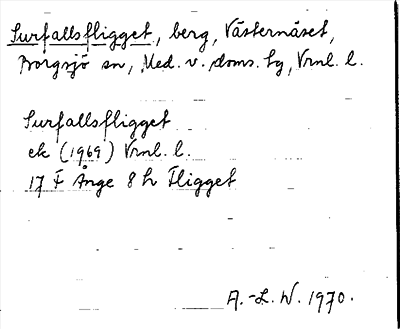 Surfallsfligget, berg, Västernäset,
Borgsjö sn, Med. v. doms. tg, Vrnl. l.
Surfallsfligget
ek (1969) Vrnl. l.
17 F Ånge 8 h Fligget
A.-L. W. 1970.